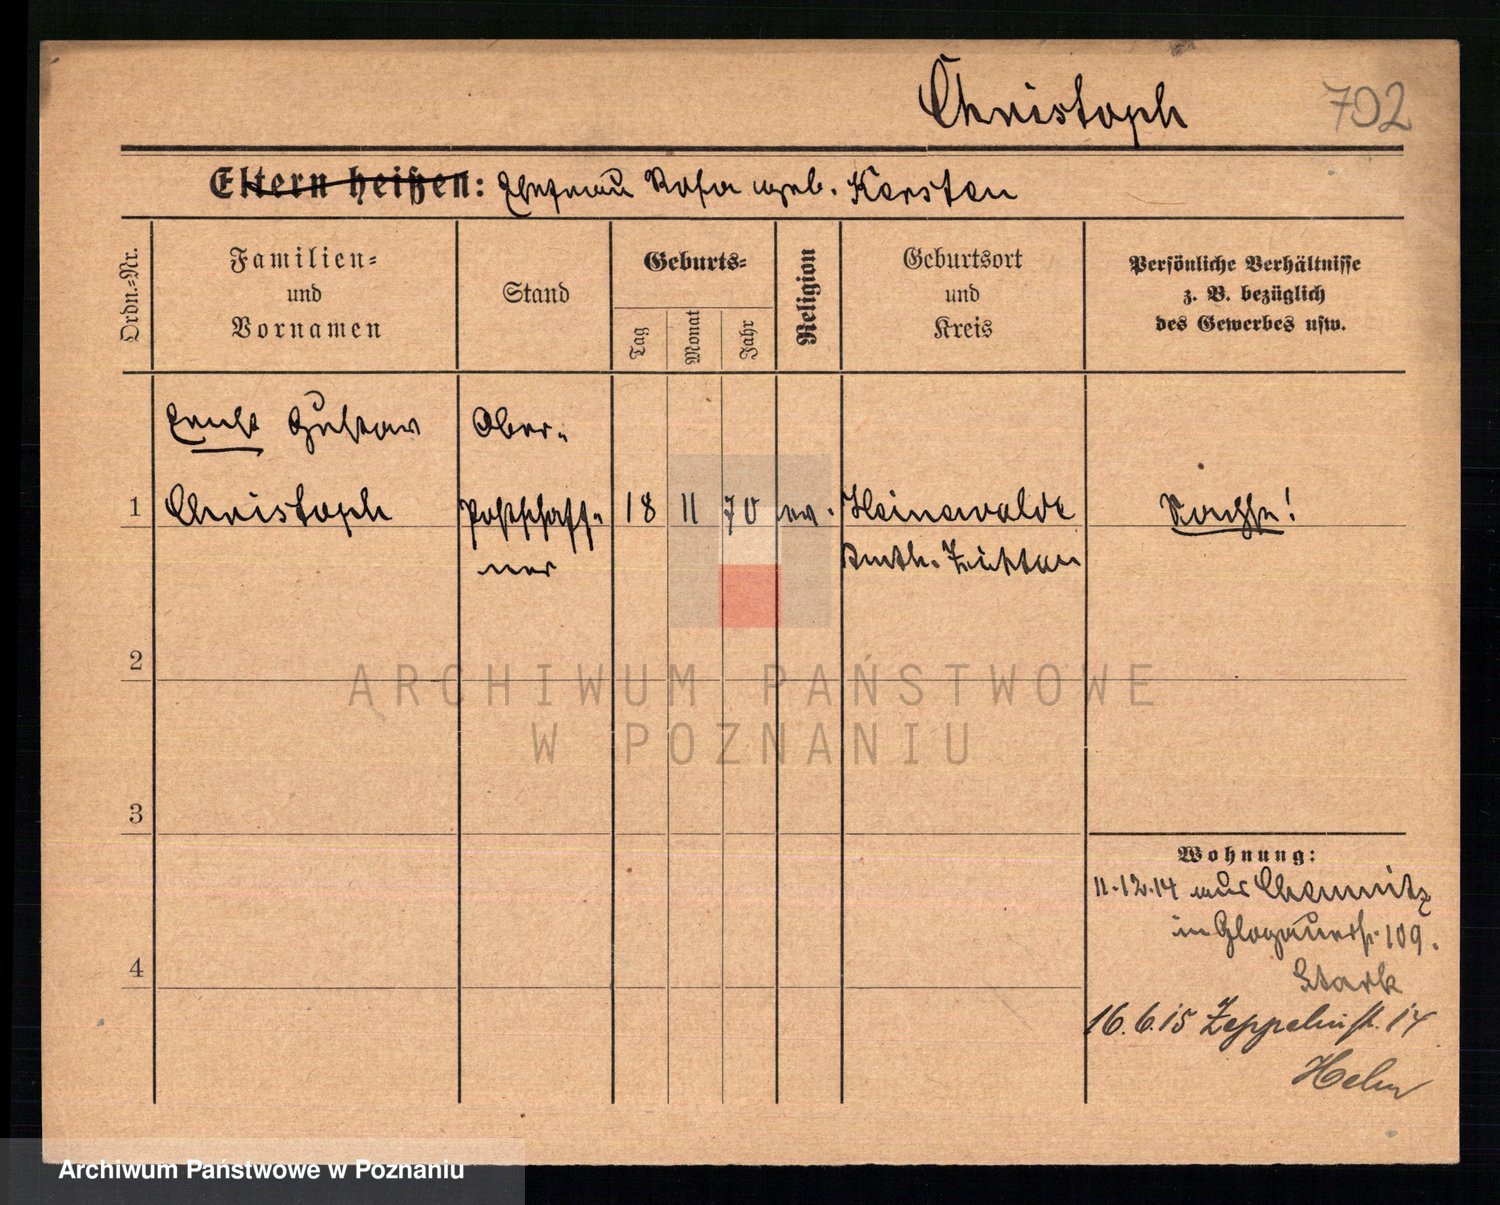 Christoph 702
Eltern heißen: Ehefrau Rosa geb. Kersten
Ordn.-Nr.
Familien-
und
Vornamen
Stand
Geburts-
Tag
Monat
Jahr
Religion
Geburtsort
und
Kreis
Persönliche Verhältnisse
z. B. bezüglich
des Gewerbes usw.
Ernst Gustav
Ober-
1 Christoph Postschaff- 18 11 70 ev. Heinewalde Sachse!
ner Amtsh. Zittau
2
3
4
Wohnung:
11.12.14 aus Chemnitz
in Glogauerstr. 109.
Stark
16.6.15 Zeppelinstr. 14
ARCHIWUM PAŃSTWOWE
W POZNANIU
Archiwum Państwowe w Poznaniu